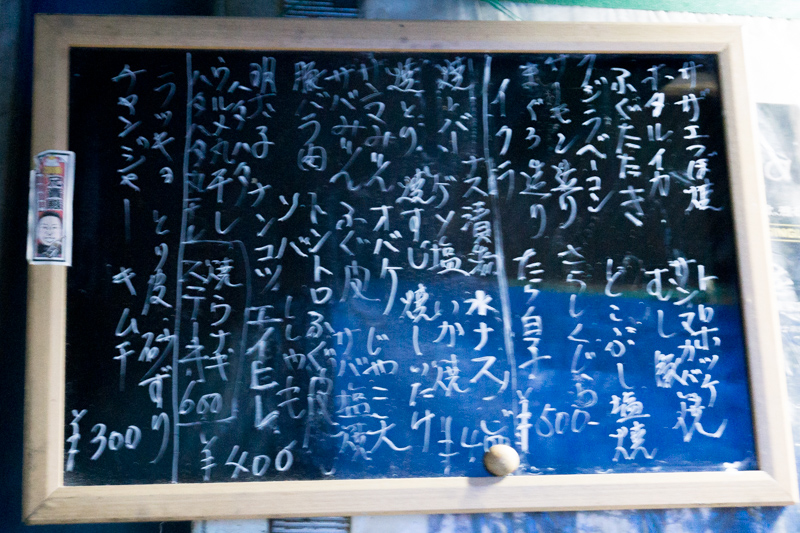 サザエつぼ焼 トロホッケ
ホタルイカ サンマカバ焼
ふぐたたき むし
クジラベーコン とこぶし塩焼
サーモン造り さらしくじら
まぐろ造り たら白子 ¥500-
イクラ
焼レバー ナス漬物 水ナス
ゲソ塩 いか焼
焼とり 焼すじ 焼しいたけ
サンマみりん オバケ じゃこ天
サバみりん ふぐ皮 サバ塩焼
豚バラ肉 トントロ ふぐ皮
ソバ ししゃも
明太子 ナンコツ エイヒレ
ハタハタ ¥400
ウルメ丸干し 焼うなぎ
ハタハタ丸干し ステーキ 600
ラッキョ とり皮 砂ずり
チャンジャー キムチ ¥300